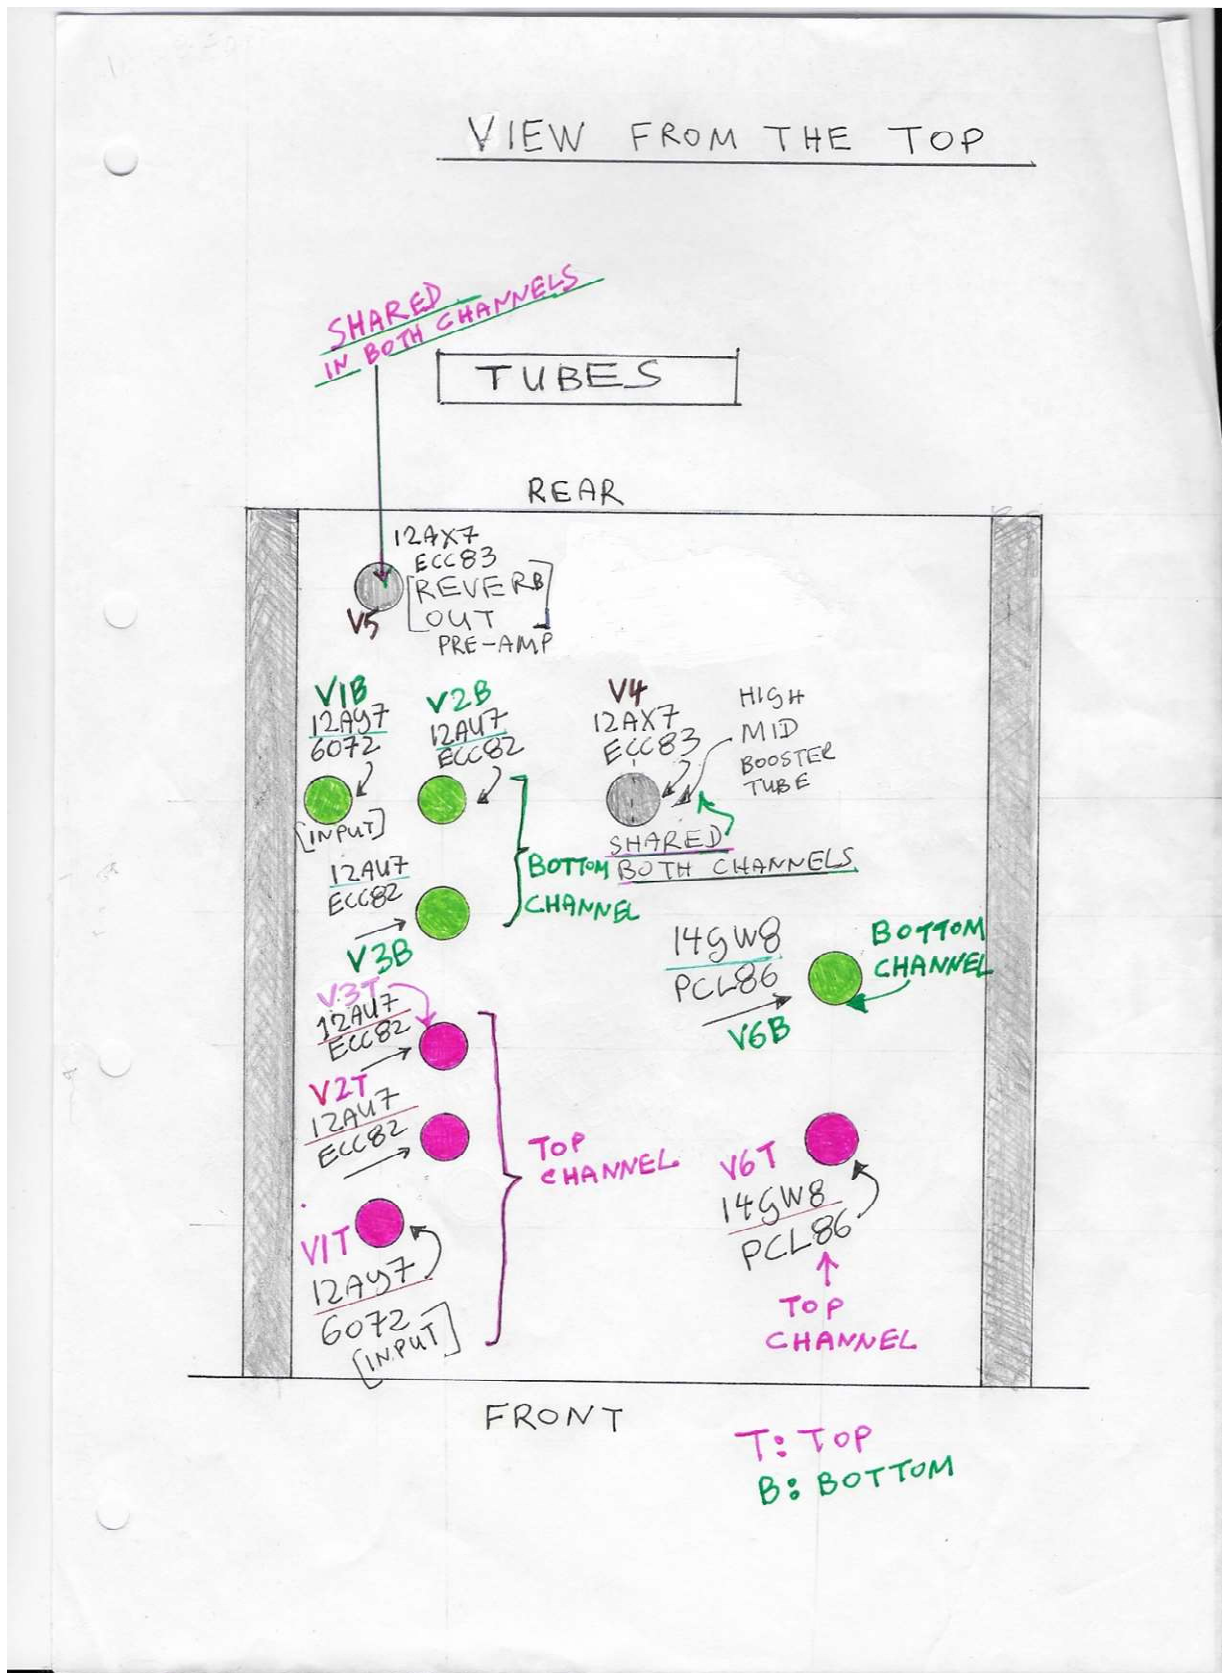 VIEW FROM THE TOP
SHARED
IN BOTH CHANNELS
TUBES
REAR
12AX7
ECC83
[REVERB
OUT]
PRE-AMP
V5
V1B
12AY7
6072
[INPUT]
V2B
12AU7
ECC82
V4
12AX7
ECC83
HIGH
MID
BOOSTER
TUBE
SHARED
BOTH CHANNELS
BOTTOM
CHANNEL
12AU7
ECC82
V3B
14GW8
PCL86
V6B
BOTTOM
CHANNEL
V3T
12AU7
ECC82
V2T
12AU7
ECC82
TOP
CHANNEL
V1T
12AY7
6072
[INPUT]
V6T
14GW8
PCL86
TOP
CHANNEL
FRONT
T: TOP
B: BOTTOM